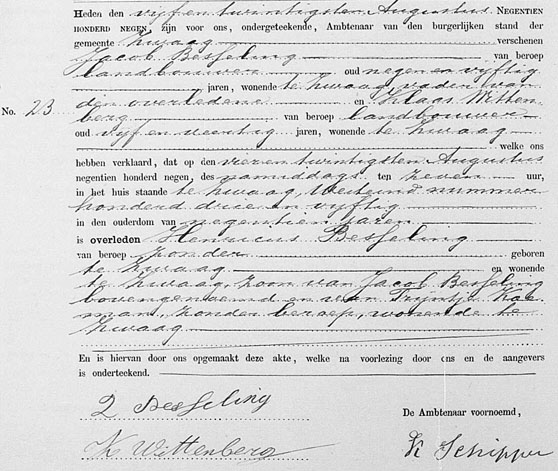 Heden den vijf en twintigsten Augustus NEGENTIEN
HONDERD NEGEN zijn voor ons, ondergeteekende, Ambtenaar van den burgerlijken stand der
gemeente Zwaag verschenen
Jacob Besseling van beroep
landbouwer oud negen en vijftig
jaren, wonende te Zwaag, vader van
den overledene en Klaas Witten-
No. 23 berg van beroep landbouwer
oud vijf en veertig jaren, wonende te Zwaag
welke ons
hebben verklaard, dat op den vier en twintigsten Augustus
negentien honderd negen, des namiddags ten zeven uur,
in het huis staande te Zwaag, Westeind nummer
honderd drie en vijftig
in den ouderdom van negentien jaren
is overleden Henricus Besseling
van beroep zonder geboren
te Zwaag en wonende
te Zwaag, zoon van Jacob Besseling
bovengenoemd en van Trijntje Koe-
man, zonder beroep, wonende te
Zwaag
En is hiervan door ons opgemaakt deze akte, welke na voorlezing door ons en de aangevers
is onderteekend.
J Besseling
De Ambtenaar voornoemd,
K Wittenberg
K Schipper